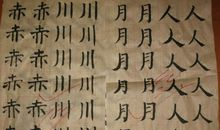 赤赤川川月月人人
赤赤川川月月人人
赤赤川川月月人人
赤赤川川月月人人
赤赤川川月月人人
赤赤川川月月人人